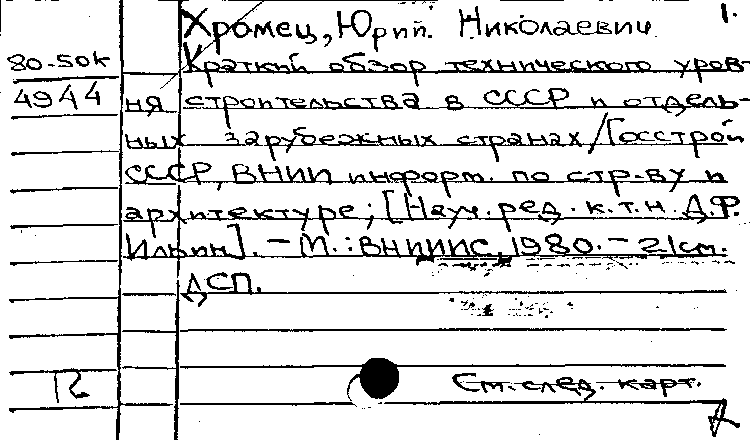 1.
Хромец, Юрий Николаевич
80-50к
Краткий обзор технического уров-
4944
ня строительства в СССР и отдель-
ных зарубежных странах/Госстрой
СССР, ВНИИ информ. по стр-ву и
архитектуре; [Науч. ред. к.т.н. Д.Ф.
Ильин]. – М.: ВНИИИС, 1980. – 21см.
ДСП.
См. след. карт.